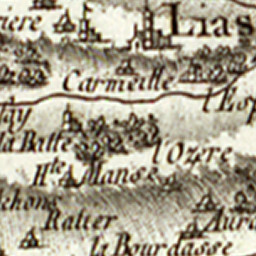 iere
Lias
Carmeille
l'Esp
la Batte
l'Ozere
Hte Manse
chons
Ratier
Aura
la Bourdasse